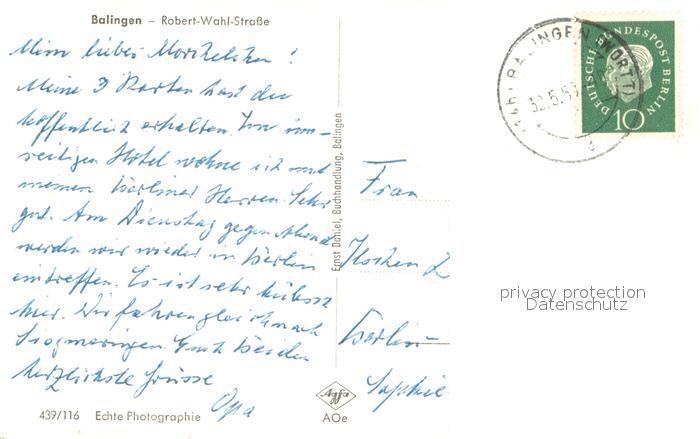 Balingen – Robert-Wahl-Straße
Mein liebes !
Meine 3 Karten hast du
hoffentlich erhalten. Im um-
seitigen Hotel wohne ich mit
meinen Berliner Herren. Sehr
gut. Am Dienstag gegen Abend
werden wir wieder in Berlin
eintreffen. Es ist sehr hübsch
hier. Wir fahren gleich nach
Sigmaringen. Euch beiden
herzlichste Grüsse
Opa
439/116 Echte Photographie
Ernst Daniel, Buchhandlung, Balingen
Agfa
AOe
BALINGEN (WÜRTT)
DEUTSCHE BUNDESPOST BERLIN
10
Frau
Berlin-
Sophie
privacy protection
Datenschutz